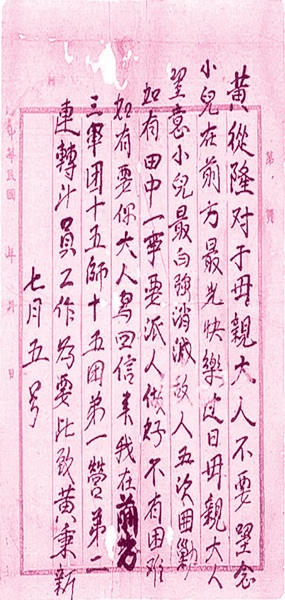 第 號
黄從隆对于母親大人不要望念
小兒在前方最光快樂 日母親大人
望意小兒最 強消滅敌人五次囲剿
如有田中一事要派人做好不有困难
如有要 大人写回信来我在前方
三軍团十五師十五团弟一營弟二
連 斗員工作为要此致黄秉新
七月五号
華民國 年 月 日